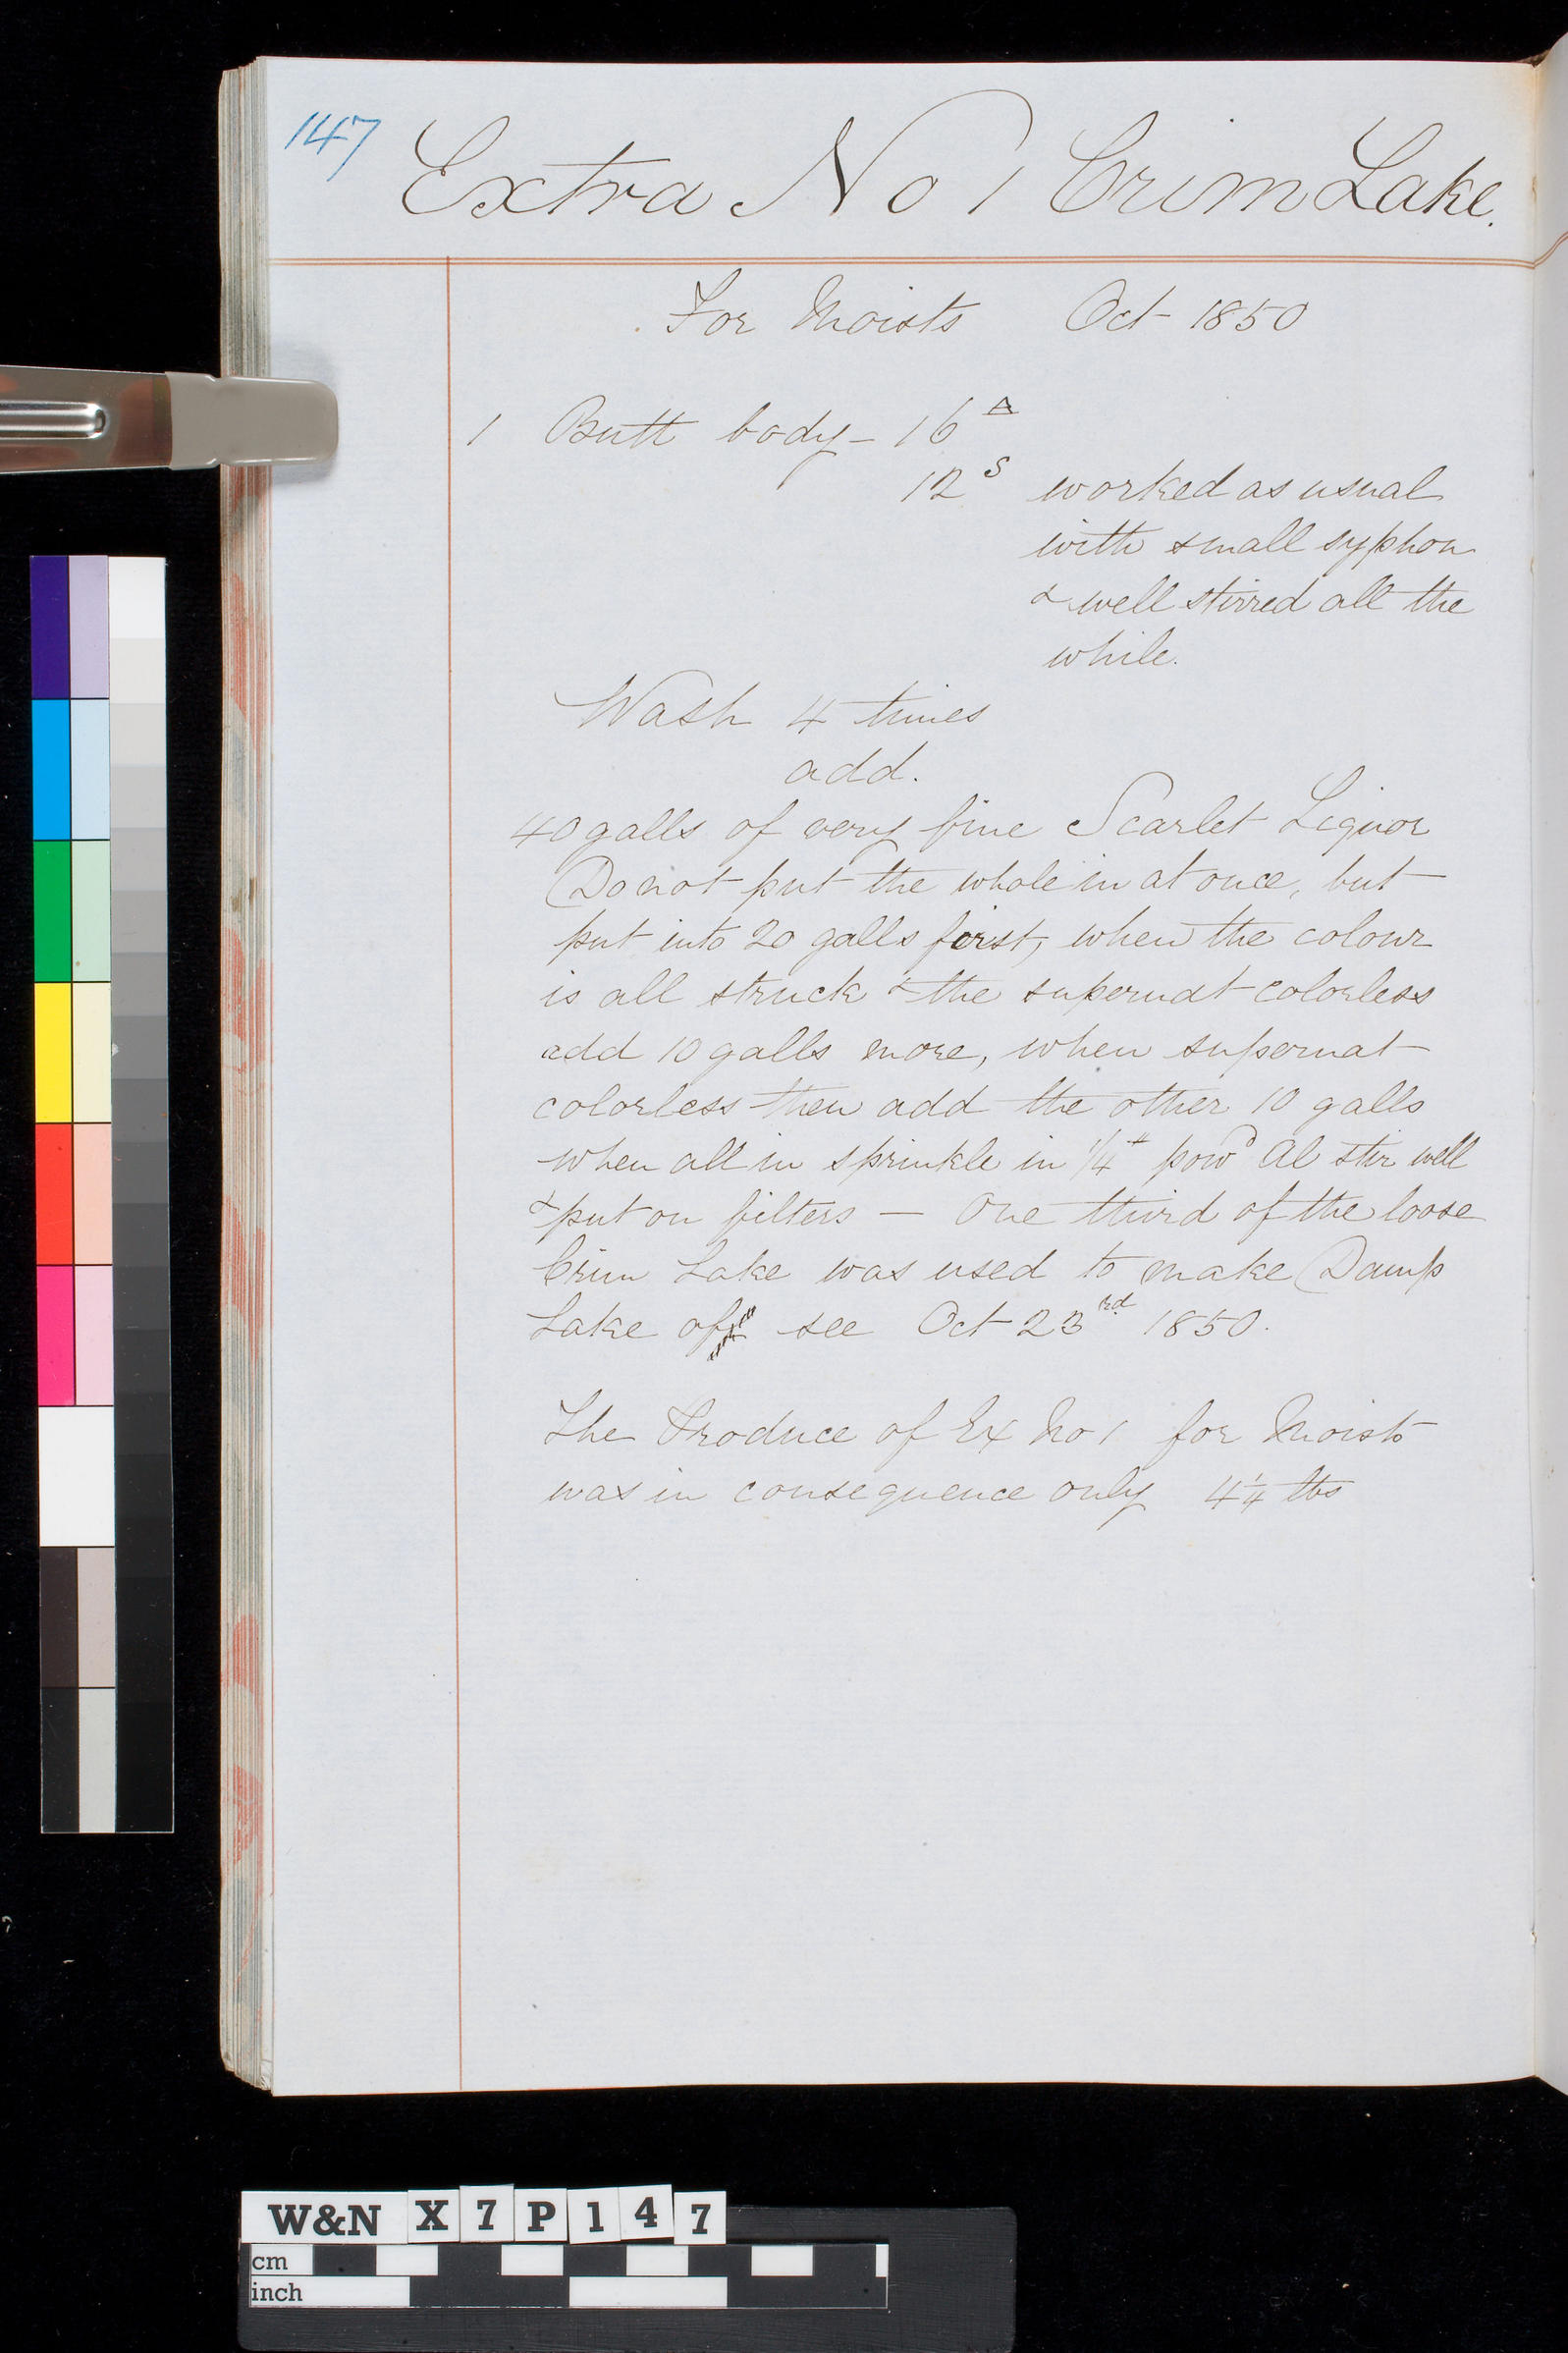 147
Extra No 1 Crim Lake.
For Moists Oct 1850
1 Butt body - 16 △
12 S worked as usual
with small syphon
& well stirred all the
while.
Wash 4 times
add.
40 galls of very fine Scarlet Liquor
Do not put the whole in at once, but
put into 20 galls first, when the colour
is all struck & the supernat colorless
add 10 galls more, when supernat
colorless then add the other 10 galls
when all in sprinkle in 1/4 # powd Al stir well
& put on filters — One third of the loose
Crim Lake was used to make Damp
Lake of see Oct 23rd 1850.
The Produce of Ex No 1 for Moists
was in consequence only 4 1/4 lbs
W&N X7P147
cm
inch